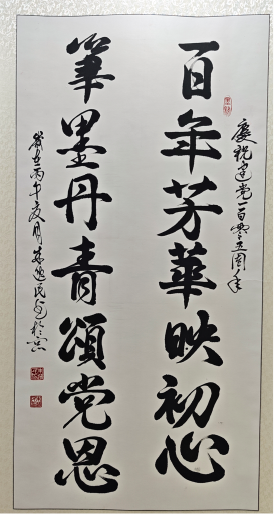 慶祝建党一百零五周年
百年芳華映初心
筆墨丹青頌党恩
歲在丙午夏月